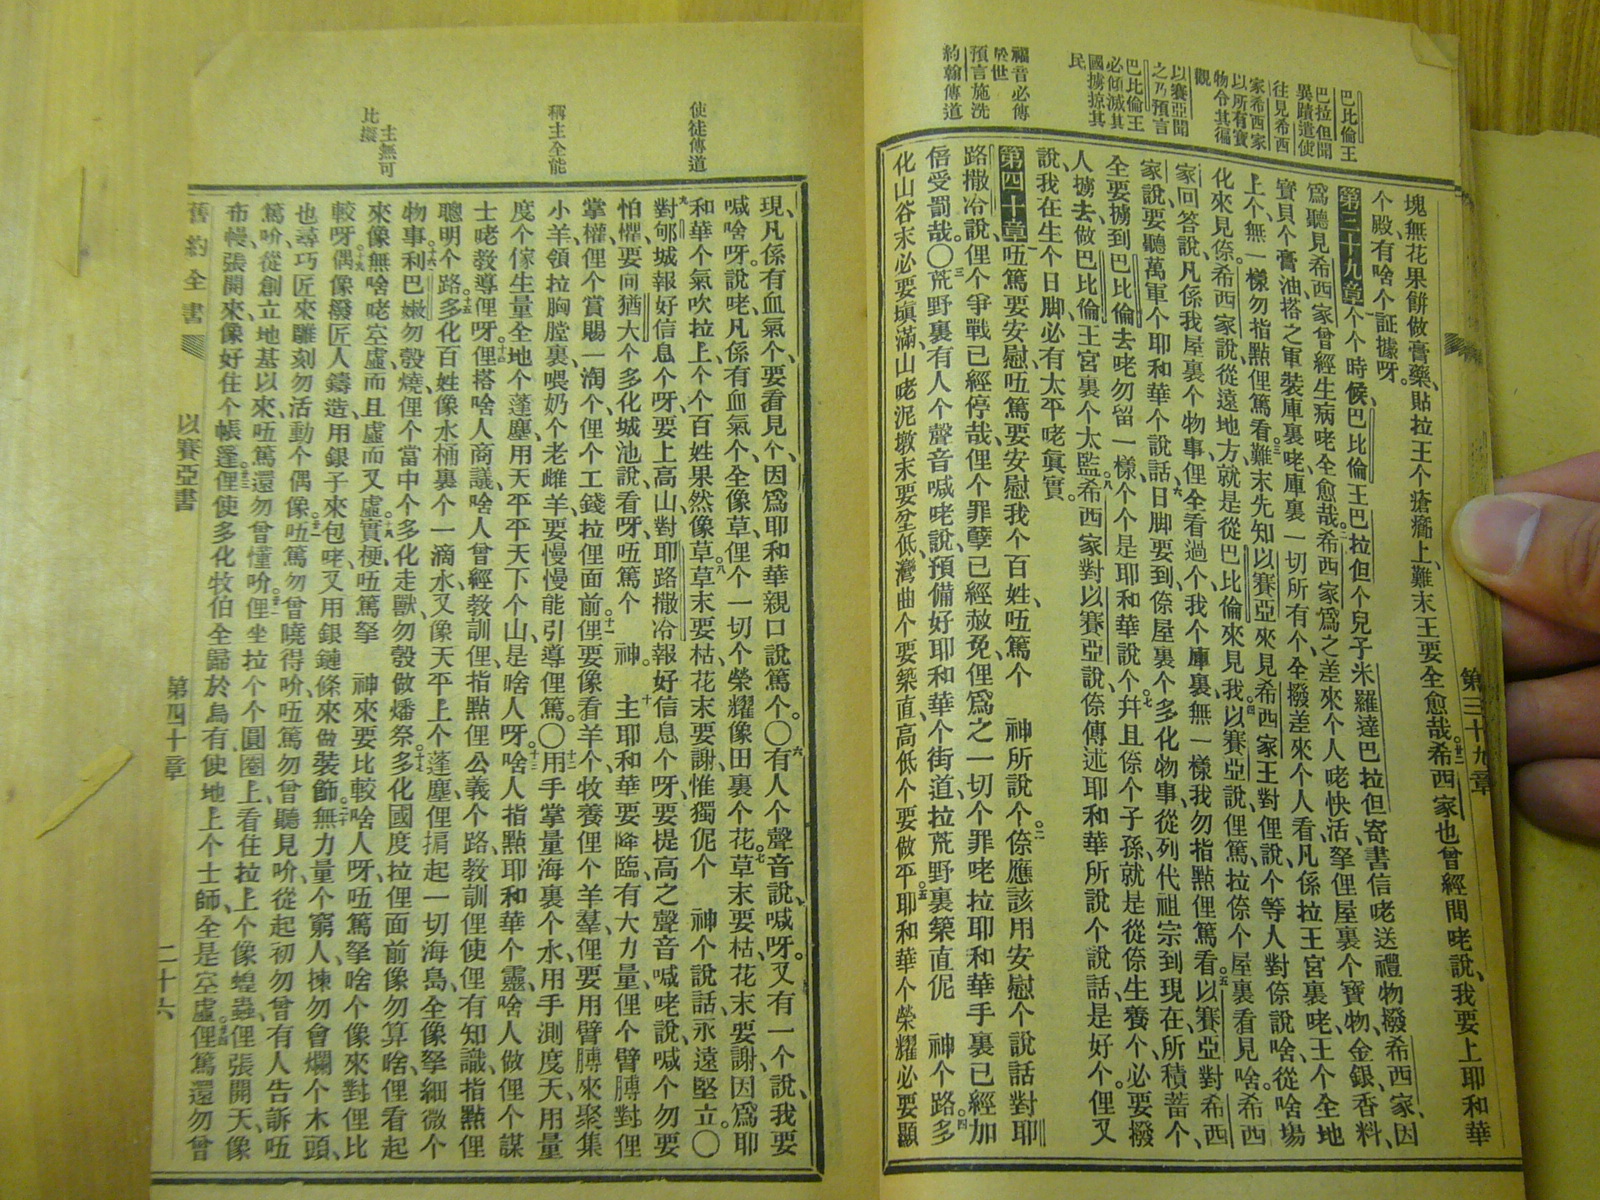 巴比倫王
巴拉但聞
異蹟遣使
往見希西
家希西家
以所有寶
物令其徧
觀
以賽亞聞
之乃預言
巴比倫王
必傾滅其
國擄掠其
民
福音必傳
於世
預言施洗
約翰傳道
塊無花果餅做膏藥、貼拉王个瘡癤上、難末王要全愈哉。希西家也曾經問咾說、我要上耶和華
个殿、有啥个証據呀。
第三十九章 个个時候、巴比倫王巴拉但个兒子米羅達巴拉但寄書信咾送禮物撥希西家、因
爲聽見希西家曾經生病咾全愈哉。希西家爲之差來个人咾快活、拏俚屋裏个寶物、金銀、香料、
寶貝个膏油搭之軍裝庫裏咾、庫裏一切所有个、全撥差來个人看、凡係拉王宮裏咾、王个全地
上个、無一樣勿指點俚篤看。難末先知以賽亞來見希西家王對俚說、个等人對㑚說啥、從啥場
化來見㑚。希西家說、從遠地方就是從巴比倫來見我。以賽亞說、俚篤拉㑚个屋裏看見啥。希西
家回答說、凡係我屋裏个物事、俚全看過个、我个庫裏、無一樣我勿指點俚篤看。以賽亞對希西
家說、要聽萬軍个耶和華个說話、日脚要到、㑚屋裏个多化物事、從列代祖宗到現在、所積蓄个、
全要擄到巴比倫去咾勿留一樣、个个是耶和華說个。幷且㑚个子孫就是從㑚生養个、必要撥
人擄去做巴比倫王宮裏个太監。希西家對以賽亞說、㑚傳述耶和華所說个說話、是好个。俚又
說、我在生个日脚、必有太平咾眞實。
第四十章 㕶篤要安慰㕶篤要安慰我个百姓、㕶篤个 神所說个。㑚應該用安慰个說話對耶
路撒冷說、俚个爭戰已經停哉、俚个罪孽已經赦免、俚爲之一切个罪咾拉耶和華手裏已經加
倍受罰哉。〇荒野裏有人个聲音喊咾說、預備好耶和華个街道、拉荒野裏築直伲 神个路。多
化山谷末必要填滿、山咾泥墩末要坌低、灣曲个要築直、高低个要做平、耶和華个榮耀必要顯
第三十九章
使徒傳道
稱主全能
主無可
比擬
現、凡係有血氣个、要看見个、因爲耶和華親口說篤个。〇有人个聲音說、喊呀。又有一个說、我要
喊啥呀。說咾、凡係有血氣个、全像草、俚个一切个榮耀像田裏个花。草末要枯、花末要謝、因爲耶
和華个氣吹拉上个、个百姓果然像草。草末要枯、花末要謝、惟獨伲个 神个說話、永遠堅立。〇
對郇城報好信息个呀、要上高山、對耶路撒冷報好信息个呀、要提高之聲音喊咾說、喊个勿要
怕懼、要向猶大个多化城池說、看呀、㕶篤个 神。 主耶和華要降臨、有大力量、俚个臂膊對俚
掌權、俚个賞賜一淘个、俚个工錢拉俚面前。俚要像看羊个牧養俚个羊羣、俚要用臂膊來聚集
小羊、領拉胸膛裏、喂奶个老雌羊、要慢慢能引導俚篤。〇用手掌量海裏个水、用手測度天、用量
度个傢生量全地个蓬塵、用天平平天下个山、是啥人呀。啥人指點耶和華个靈、啥人做俚个謀
士咾敎導俚呀。俚搭啥人商議、啥人曾經敎訓俚、指點俚公義个路、敎訓俚、使俚有知識、指點俚
聰明个路。多化百姓像水桶裏个一滴水、又像天平上个蓬塵、俚掮起一切海島、全像拏細微个
物事。利巴嫩勿彀燒、俚个當中个多化走獸、勿彀做燔祭。多化國度拉俚面前像勿算啥、俚看起
來像無啥咾空虛而且虛而又虛。實梗、㕶篤拏 神來要比較啥人呀、㕶篤拏啥个像來對俚比
較呀。偶像撥匠人鑄造、用銀子來包咾、又用銀鏈條來做裝飾。無力量个窮人、揀勿會爛个木頭、
也尋巧匠來雕刻勿活動个偶像。㕶篤勿曾曉得吤、㕶篤勿曾聽見吤、從起初勿曾有人告訴㕶
篤吤、從創立地基以來、㕶篤還勿曾懂吤。俚坐拉个个圓圈上、看住拉上个像蝗蟲、俚張開天、像
布幔、張開來、像好住个帳篷。俚使多化牧伯全歸於烏有、使地上个士師、全是空虛。俚篤還勿曾
舊約全書 以賽亞書 第四十章 二十六